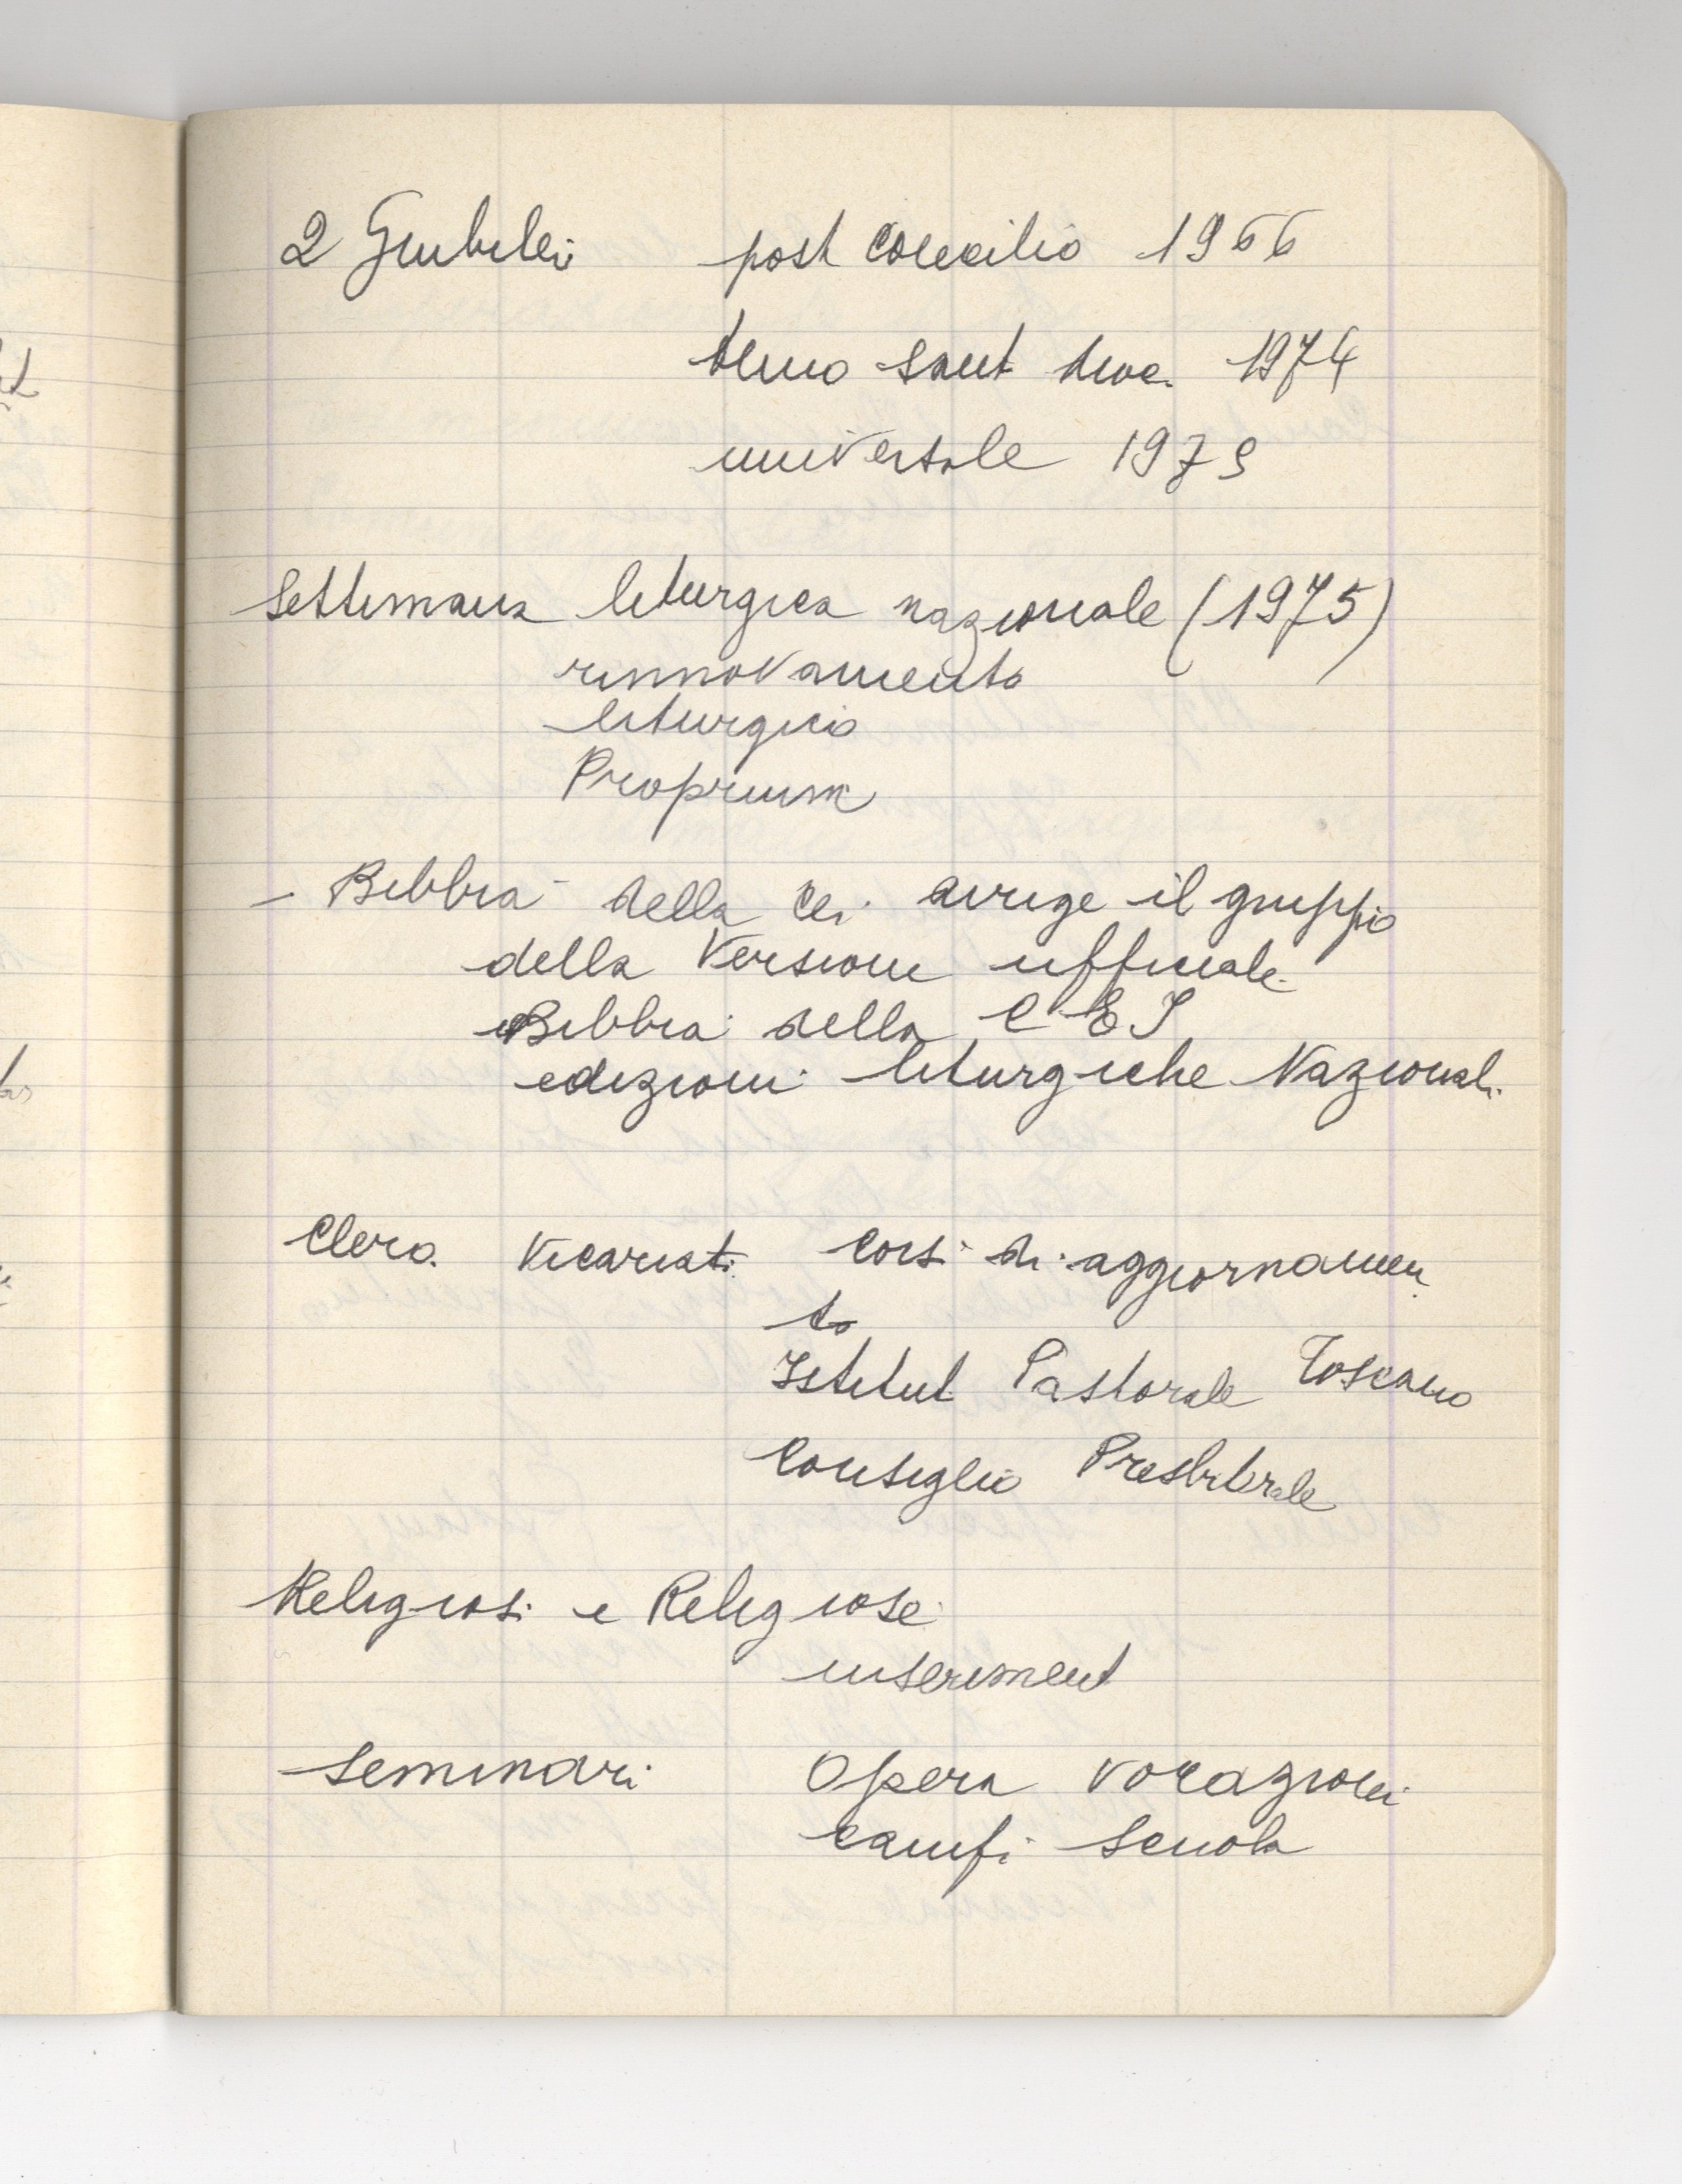 2 Giubilei post concilio 1966
Anno Sant dioc. 1974
universale 1975
Settimana liturgica nazionale (1975)
rinnovamento
liturgico
Proprium
- Bibbia della Cei dirige il gruppo
della Versione ufficiale
Bibbia della C E I
edizioni liturgiche Nazionali
Clero. Vicariati Corsi di aggiornamen
to
Istitut Pastorale Toscano
Consiglio Presbiterale
Religiosi e Religiose
inseriment
Seminari Opera vocazioni
campi scuola